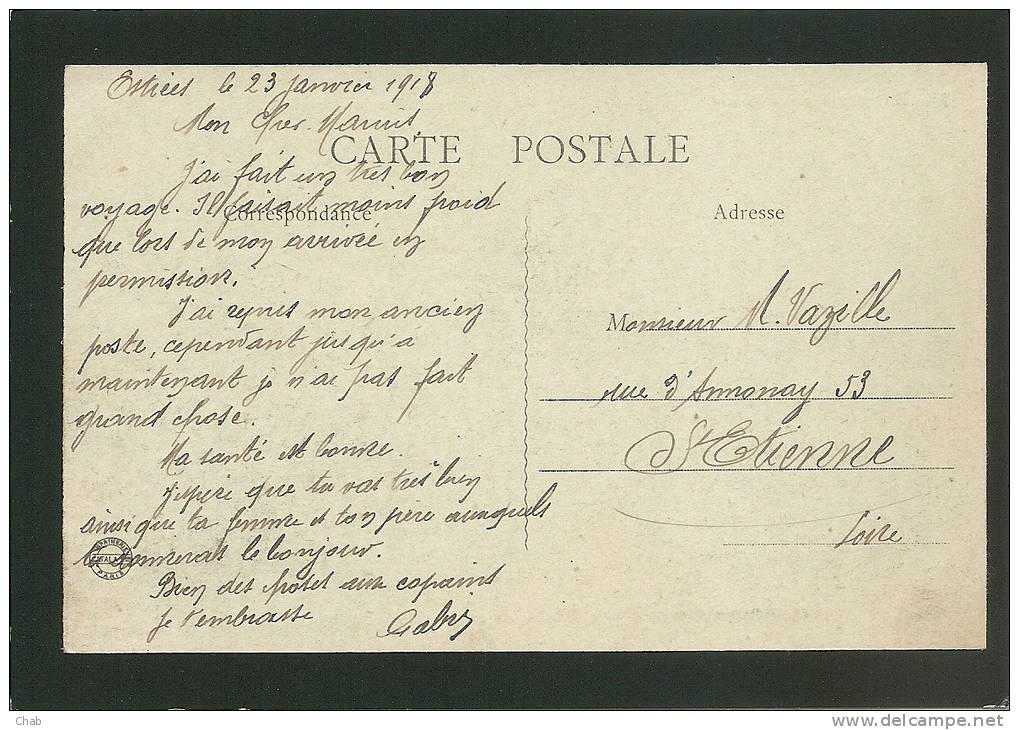 le 23 janvier 1918
Mon Cher Marius,
CARTE POSTALE
J'ai fait un très bon
voyage. Il faisait moins froid
Correspondance
que lors de mon arrivée en
permission.
J'ai repris mon ancien
poste, cependant jusqu'à
maintenant je n'ai pas fait
grand chose.
Ma santé est bonne.
J'espère que tu vas très bien
ainsi que ta femme et ton père auxquels
donneras le bonjour.
Bien des choses aux copains
Je t'embrasse
Adresse
Monsieur M. Vazille
rue d'Annonay 53
St Etienne
Loire
IMPRIMERIE
CATALA
PARIS
Chab
delcampe.net